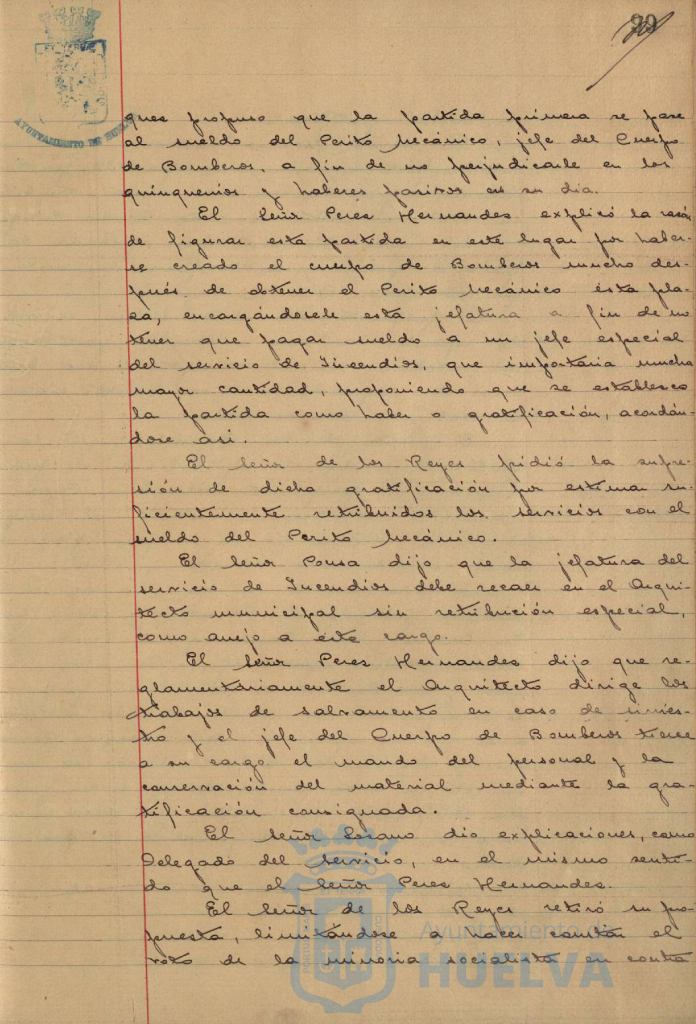 99
AYUNTAMIENTO DE HUELVA
ques propuso que la partida primera se pase
al sueldo del Perito Mecánico, jefe del Cuerpo
de Bomberos, a fin de no perjudicarle en los
quinquenios y haberes pasivos en su dia.
El Señor Peres Hernandes explicó la rasón
de figurar esta partida en este lugar por haber-
se creado el cuerpo de Bomberos mucho des-
pués de obtener el Perito Mecánico esta pla-
sa, encargándosele esta jefatura a fin de no
tener que pagar sueldo a un jefe especial
del servicio de Incendios, que importaria mucha
mayor cantidad, proponiendo que se establesca
la partida como haber o gratificación, acordán-
dose asi.
El Señor de los Reyes pidió la supre-
sión de dicha gratificación por estimar su-
ficientemente retribuidos los servicios con el
sueldo del Perito Mecánico.
El Señor Ponsa dijo que la jefatura del
servicio de Incendios debe recaer en el Arqui-
tecto municipal sin retribución especial,
como anejo a este cargo.
El Señor Peres Hernandes dijo que re-
glamentariamente el Arquitecto dirige los
trabajos de salvamento en caso de sinies-
tro y el jefe del Cuerpo de Bomberos tiene
a su cargo el mando del personal y la
conservación del material mediante la gra-
tificación consignada.
El Señor Losano dio explicaciones, como
Delegado del servicio, en el mismo senti-
do que el Señor Peres Hernandes.
El Señor de los Reyes retiró su pro-
puesta, limitándose a hacer constar el
voto de la minoria socialista en contra
Ayuntamiento de
HUELVA